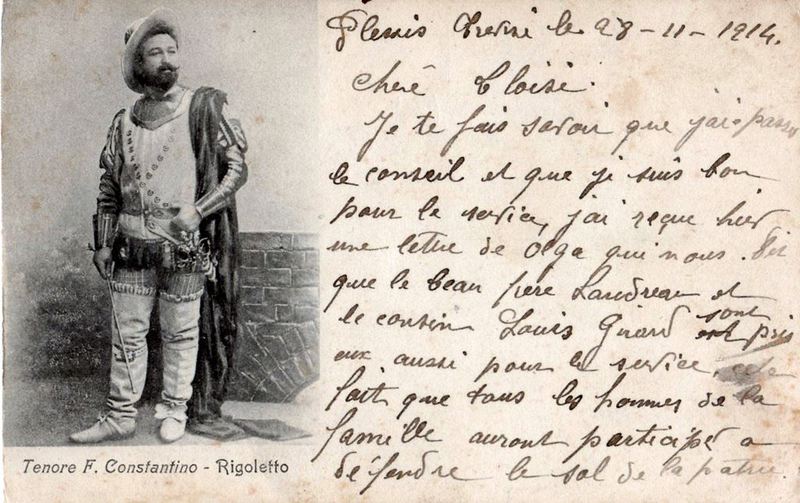 Plessis Trevise le 28-11-1914.
Chere Eloïse.
Je te fais savoir que j'ai passé
le conseil et que je suis bon
pour le service, j'ai reçue hier
une lettre de Olga qui nous dit
que le beau père Landreau et
le cousin Louis Girard sont pris
eux aussi pour le service, cela
fait que tous les hommes de la
famille auront participé a
défendre le sol de la patrie.
Tenore F. Constantino - Rigoletto